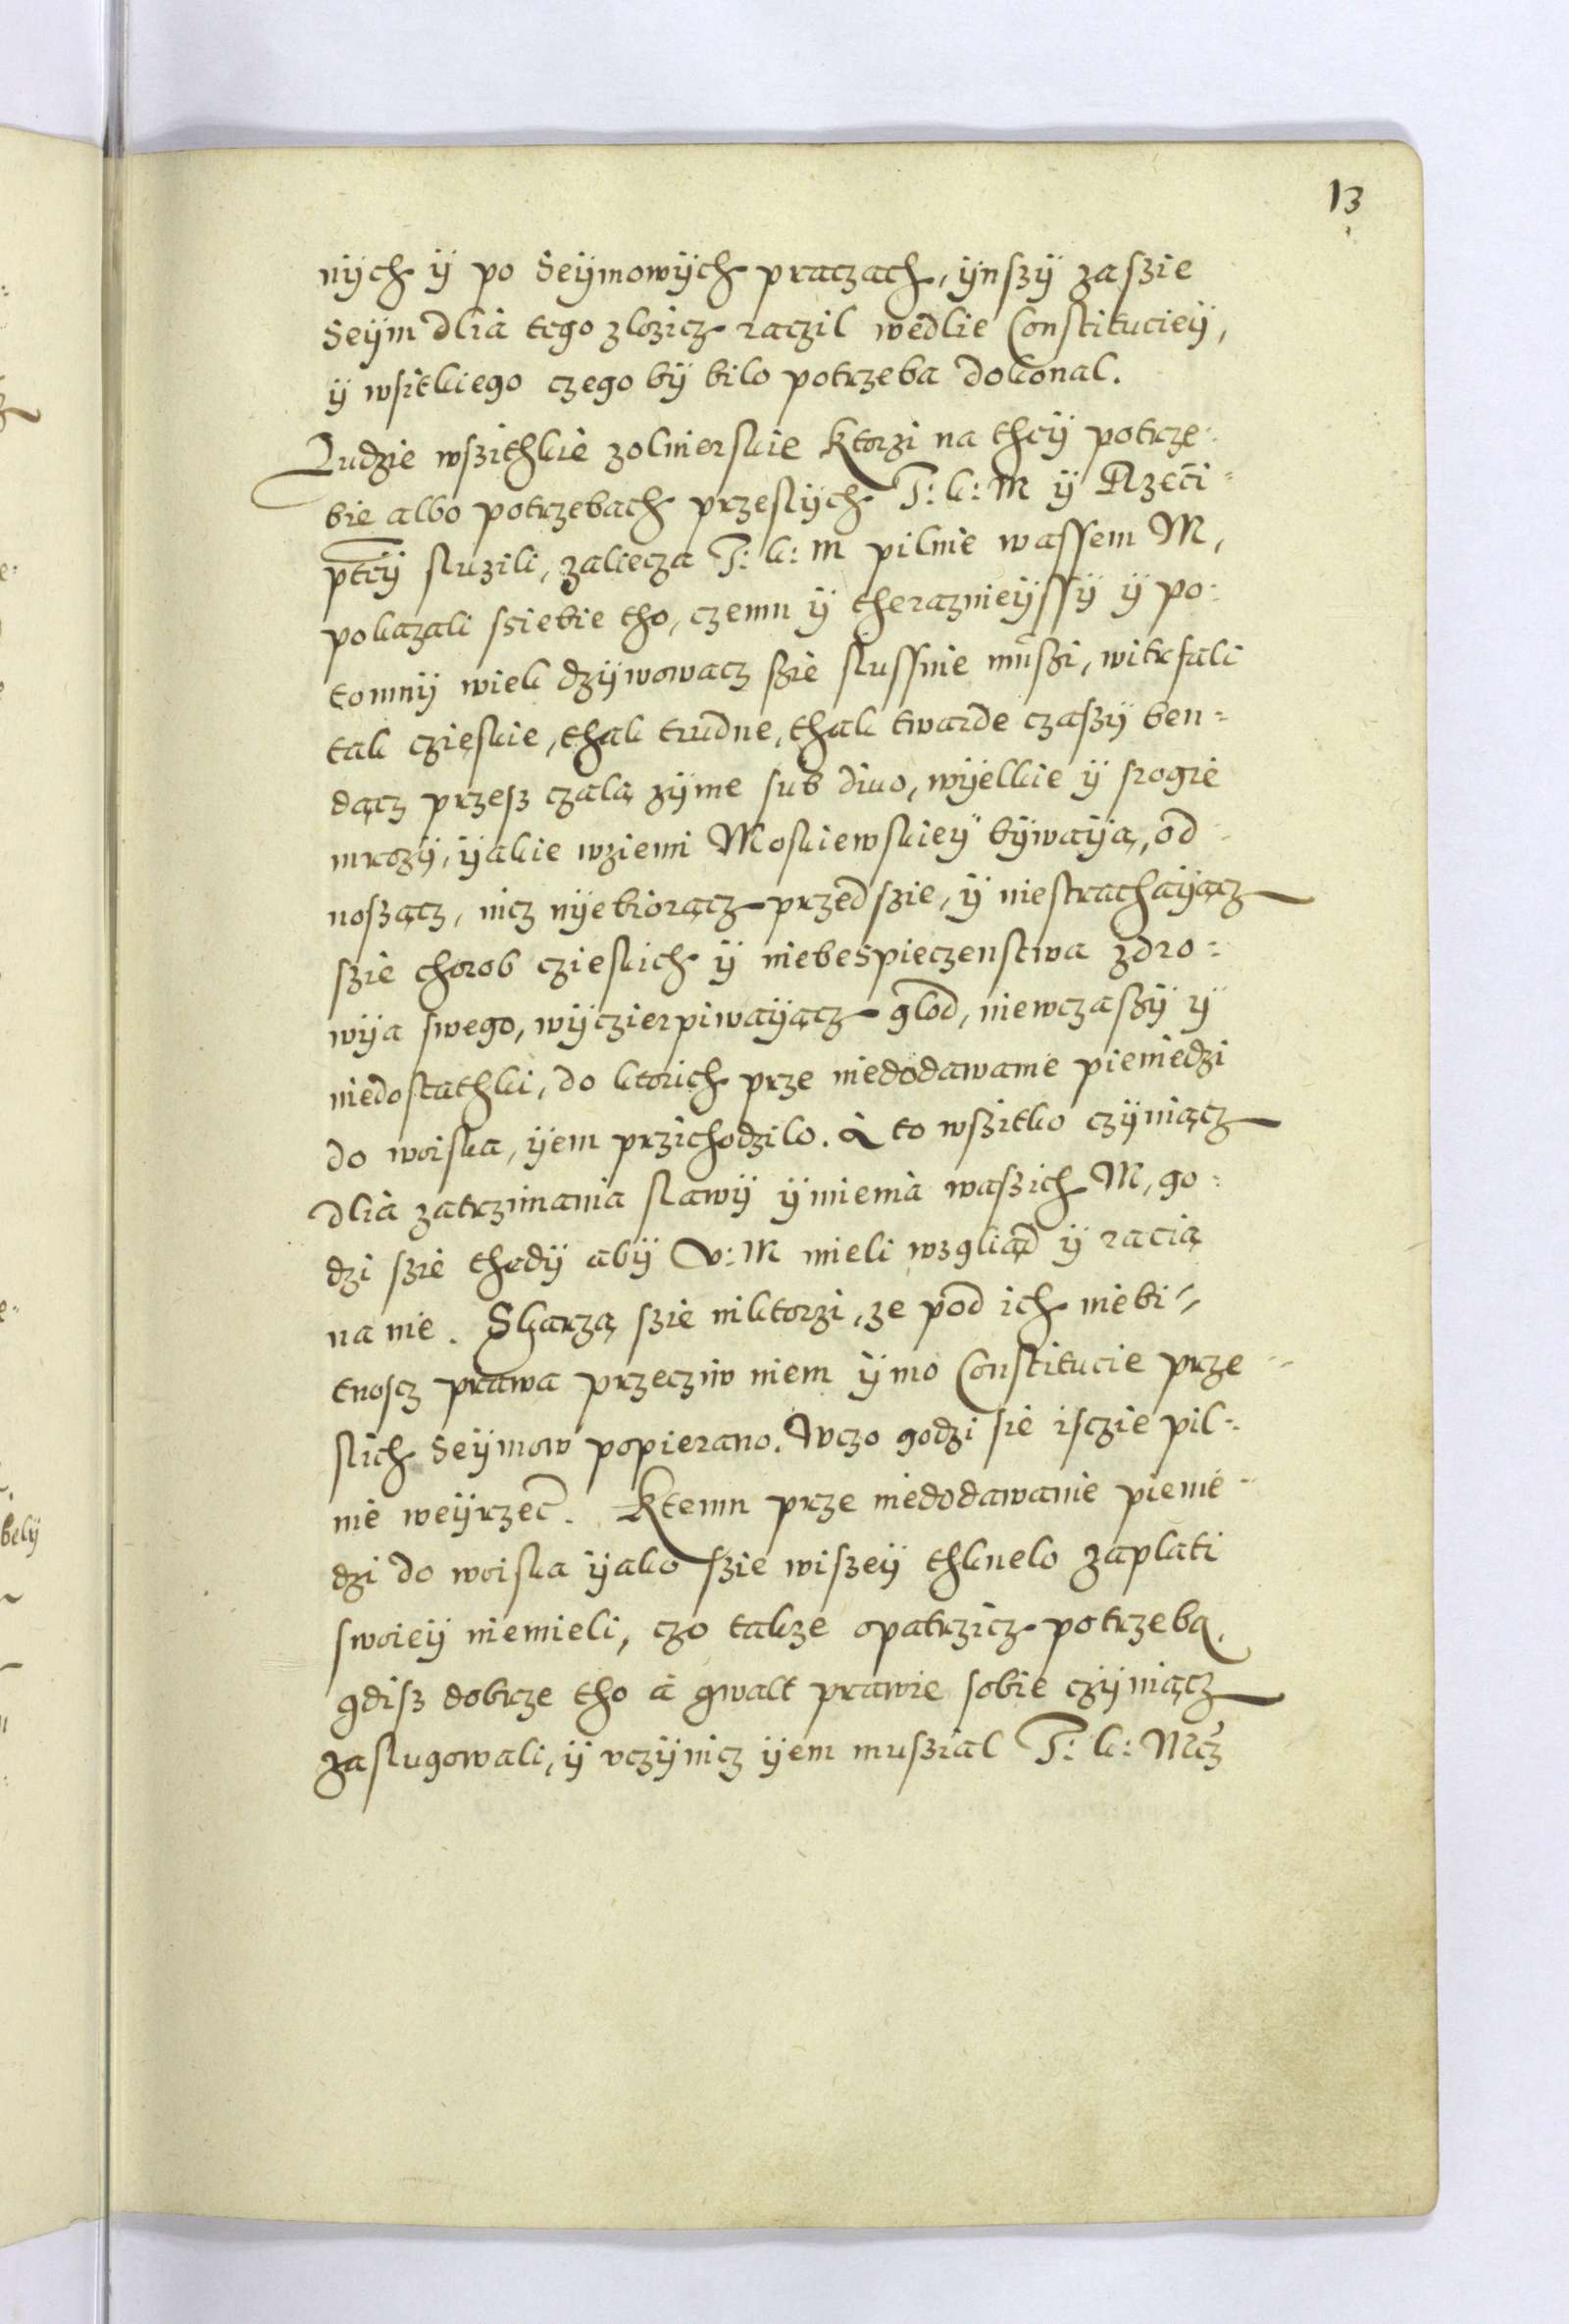 13
nÿch ÿ po Seÿmowÿch praczach, ÿnszÿ zaszie
Seÿm dlia tego zlozicz raczil wedlie Constituciey,
ÿ wsitkiego czego bÿ bilo potrzeba dokonal.
Ludzie wszithkie zolnierskie Ktorzi na theÿ potrze-
bie albo potrzebach przeslÿch T: k: M ÿ Rzeči-
pteÿ sluzili, zaliecza T: k: M pilnie wassem M,
pokazali ssiebie tho, czemu ÿ theraznieÿssÿ ÿ po-
tomnÿ wiek dzÿwowacz szie slussnie muszi, witrfali
tak czieskie, thak trudne, thak twarde czaszÿ ben-
dącz przesz czalą zÿme sub diuo, wÿelkie ÿ srogie
mrozÿ, ÿakie wziemi Moskiewskieÿ bÿwaÿą, od-
noszącz, nicz nÿebiorącz przed szie, ÿ niestrachaÿącz
szie chorob czieskich ÿ niebespieczenstwa zdro-
wÿa swego, wÿczierpiwaÿącz glod, niewczaszÿ ÿ
niedostathki, do ktorich prze niedodawanie pieniedzi
do woiska, ÿem przichodzilo. A to wszitko czÿniącz
dlia zatrzimania slawÿ ÿmienia waszich M, go-
dzi szie thedÿ abÿ V: M mieli wzgliąd ÿ racią
na nie. Skarzą szie niktorzi, ze pod ich niebi-
tnoscz prawa przecziw niem ÿmo Constitucie prze-
slich Seÿmow popierano. Wczo godzi sie isczie pil-
nie weÿrzeč. Ktemu prze niedodawanie pienie-
dzi do woiska ÿako szie wiszeÿ thknelo zaplati
swoieÿ niemieli, czo takze opatrzicz potrzeba,
gdisz dobrze tho a gwalt prawie sobie czÿniącz
zaslugowali, ÿ vczÿnicz ÿem muszial T: k: Mcz